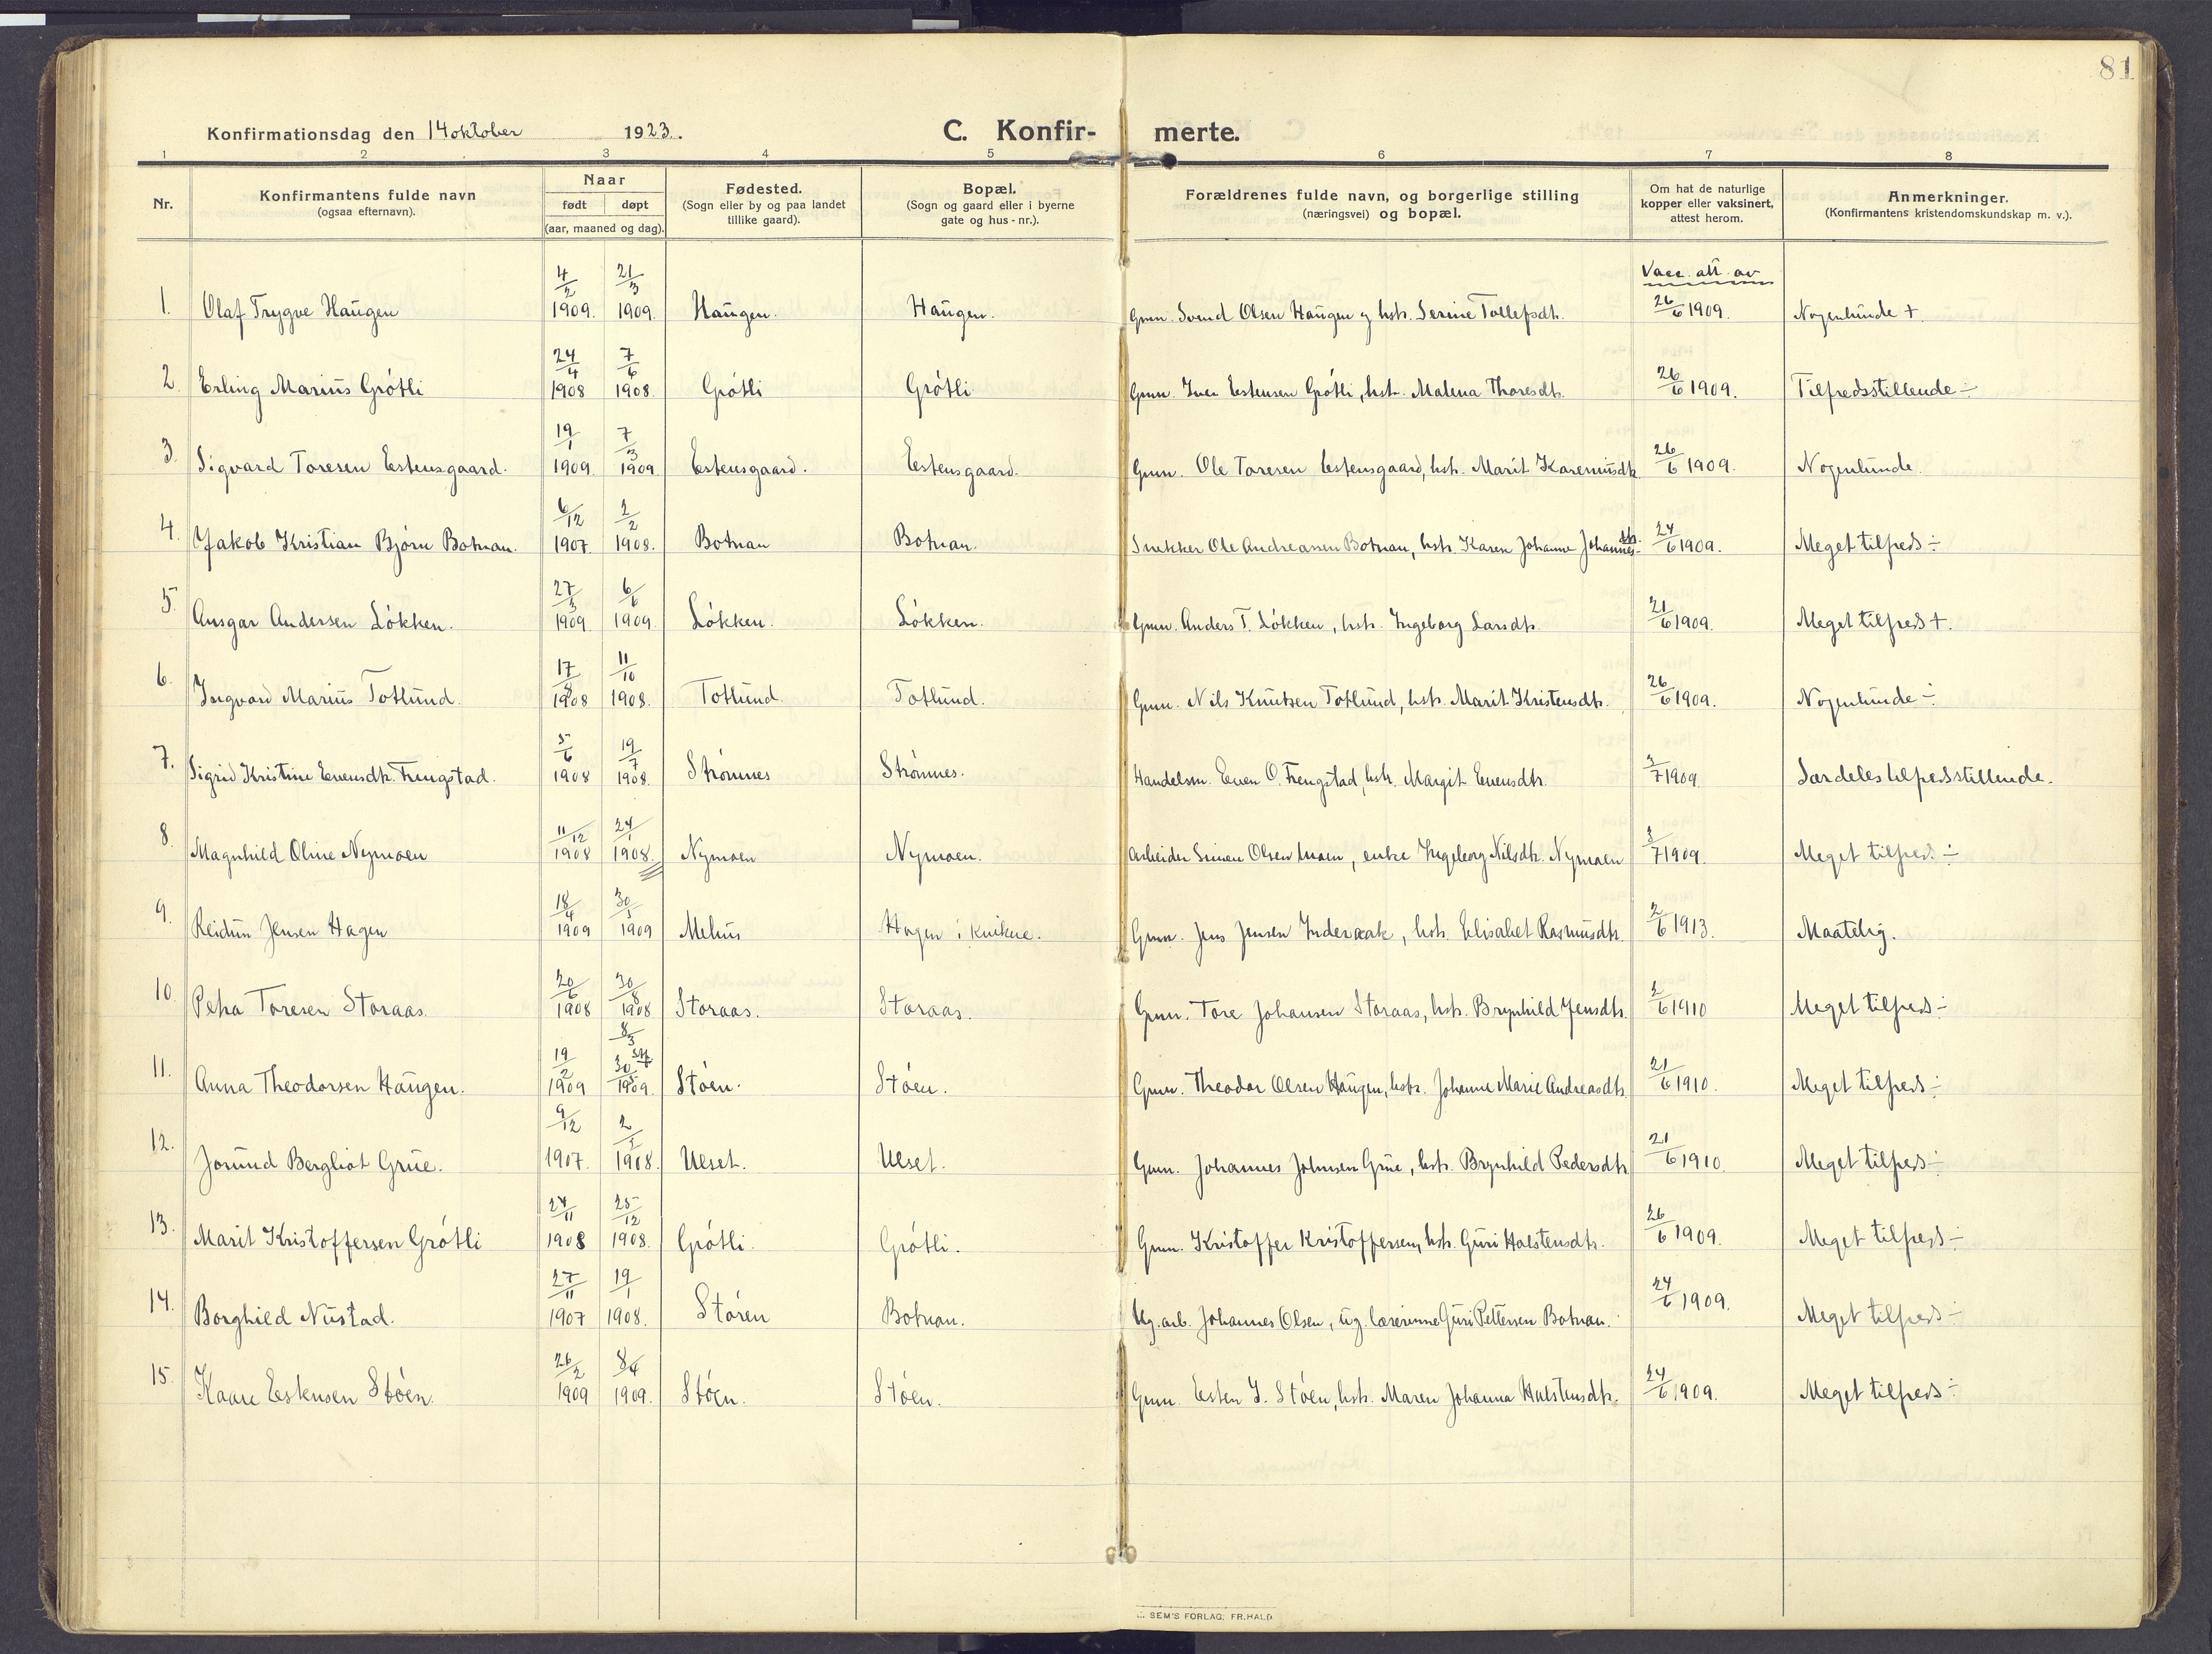 81
Konfirmationsdag den 14 oktober 1923.
C. Konfir- merte.
1 2 3 4 5 6 7 8
Nr.
Konfirmantens fulde navn
(ogsaa efternavn).
Naar
født døpt
(aar, maaned og dag).
Fødested.
(Sogn eller by og paa landet
tillike gaard).
Bopæl.
(Sogn og gaard eller i byerne
gate og hus-nr.).
Forældrenes fulde navn, og borgerlige stilling
(næringsvei) og bopæl.
Om hat de naturlige
kopper eller vaksinert,
attest herom.
Anmerkninger.
(Konfirmantens kristendomskundskap m. v.).
Vacc. att. av
1. Olaf Trygve Haugen 4/2 1909. 21/3 1909. Haugen. Haugen. Gmn. Svend Olsen Haugen og hstr. Serine Tollefsdtr. 26/6 1909. Nogenlunde +
2. Erling Marius Grótli 24/4 1908 7/6 1908. Grótli Grótli Gmn. Iver Estensen Grótli, hstr. Malena Thoresdtr. 26/6 1909. Tilfredsstillende ÷
3. Sigvard Toresen Estensgaard. 19/1 1909. 7/3 1909 Estensgaard. Estensgaard. Gmn. Ole Toresen Estensgaard, hstr. Marit Karenusdtr. 26/6 1909. Nogenlunde.
4. Jakob Kristian Bjørn Botnan. 6/12 1907. 2/2 1908. Botnan Botnan. Snekker Ole Andreassen Botnan, hstr. Karen Johanne Johannesdtr. 24/6 1909. Meget tilfreds ÷
5. Ansgar Andersen Lókken. 27/3 1909. 6/6 1909 Lókken. Lókken. Gmn. Anders T. Lókken, hstr. Ingeborg Larsdtr. 21/6 1909. Meget tilfreds +.
6. Ingvard Marius Totlund. 17/8 1908 11/10 1908. Totlund. Totlund. Gmn. Nils Knutsen Totlund, hstr. Marit Kristensdtr. 26/6 1909. Nogenlunde ÷
7. Sigrid Kristine Evensdtr. Frengstad. 5/6 1908 19/7 1908. Strømnes Strømnes. Handelsm. Even O. Frengstad, hstr. Margit Evensdtr. 3/7 1909. Særdeles tilfredsstillende.
8. Magnhild Oline Nymoen 11/12 1908 24/1 1908. Nymoen Nymoen. Arbeider Simen Olsen Moen, enke Ingeborg Nilsdtr. Nymoen 3/7 1909. Meget tilfreds. ÷
9. Reidun Jensen Hagen 18/4 1909 30/5 1909 Mehus Hagen i Knikne. Gmn. Jens Jensen Inderaak, hstr. Elisabet Rasmusdtr. 2/6 1913. Maatelig.
10. Petra Toresen Storaas. 20/6 1908 30/8 1908 Storaas. Storaas. Gmn. Tore Johansen Storaas, hstr. Brynhild Jensdtr. 2/6 1910 Meget tilfreds ÷
11. Anna Theodorsen Haugen. 19/2 1909 8/3 30/5 st. 1909. Stóen. Stóen. Gmn. Theodor Olsen Haugen, hstr. Johanne Marie Andreasdtr. 21/6 1910. Meget tilfreds ÷
12. Jorund Bergliot Grue. 9/12 1907. 2/2 1908. Ulset. Ulset. Gmn. Johannes Johnsen Grue, hstr. Brynhild Pedersdtr. 21/6 1910. Meget tilfreds ÷
13. Marit Kristoffersen Grótli 24/11 1908 25/12 1908. Grótli. Grótli. Gmn. Kristoffer Kristoffersen, hstr. Guri Halstensdtr. 26/6 1909. Meget tilfreds ÷
14. Borghild Nustad. 27/11 1907 19/1 1908. Støren Botnan. Ug. arb. Johannes Olsen, ug. lærerinne Guri Pettersen Botnan. 24/6 1909. Meget tilfreds ÷
15. Kaare Estensen Stóen. 26/2 1909 8/4 1909. Stóen. Stóen. Gmn. Esten I. Stóen, hstr. Maren Johanna Halstensdtr. 24/6 1909. Meget tilfreds ÷
SEM'S FORLAG: FR. HALD.